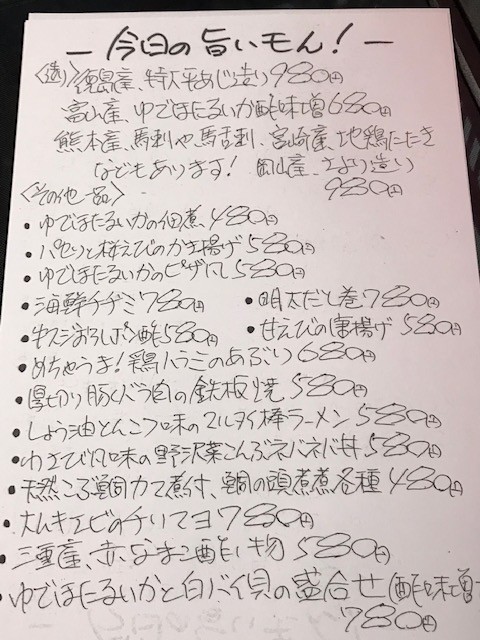 — 今日の旨いモん! —
〈造〉徳島産、特大平あじ造り980円
富山産、ゆでほたるいか酢味噌680円
熊本産、馬刺や、馬舌刺、宮崎産、地鶏たたき
などもあります! 岡山産、さより造り
980円
〈その他一品〉
・ゆでほたるいかの佃煮480円
・パセリと桜えびのかき揚げ580円
・ゆでほたるいかのピザ風580円
・海鮮チヂミ780円 ・明太だし巻780円
・牛スジおろしポン酢580円 ・甘えびの唐揚げ580円
・めちゃうま!鶏ハラミのあぶり680円
・厚切り豚バラ肉の鉄板焼580円
・しょう油とんこつ味のマルタイ棒ラーメン580円
・わさび風味の野沢菜こんぶネバネバ丼580円
・天然こぶ鯛カマ煮付、鯛の頭煮煮各種480円
・大ムキエビのチリマヨ780円
・三重産、赤なまこ酢の物580円
・ゆでほたるいかと白バイ貝の盛合せ(酢味噌
780円